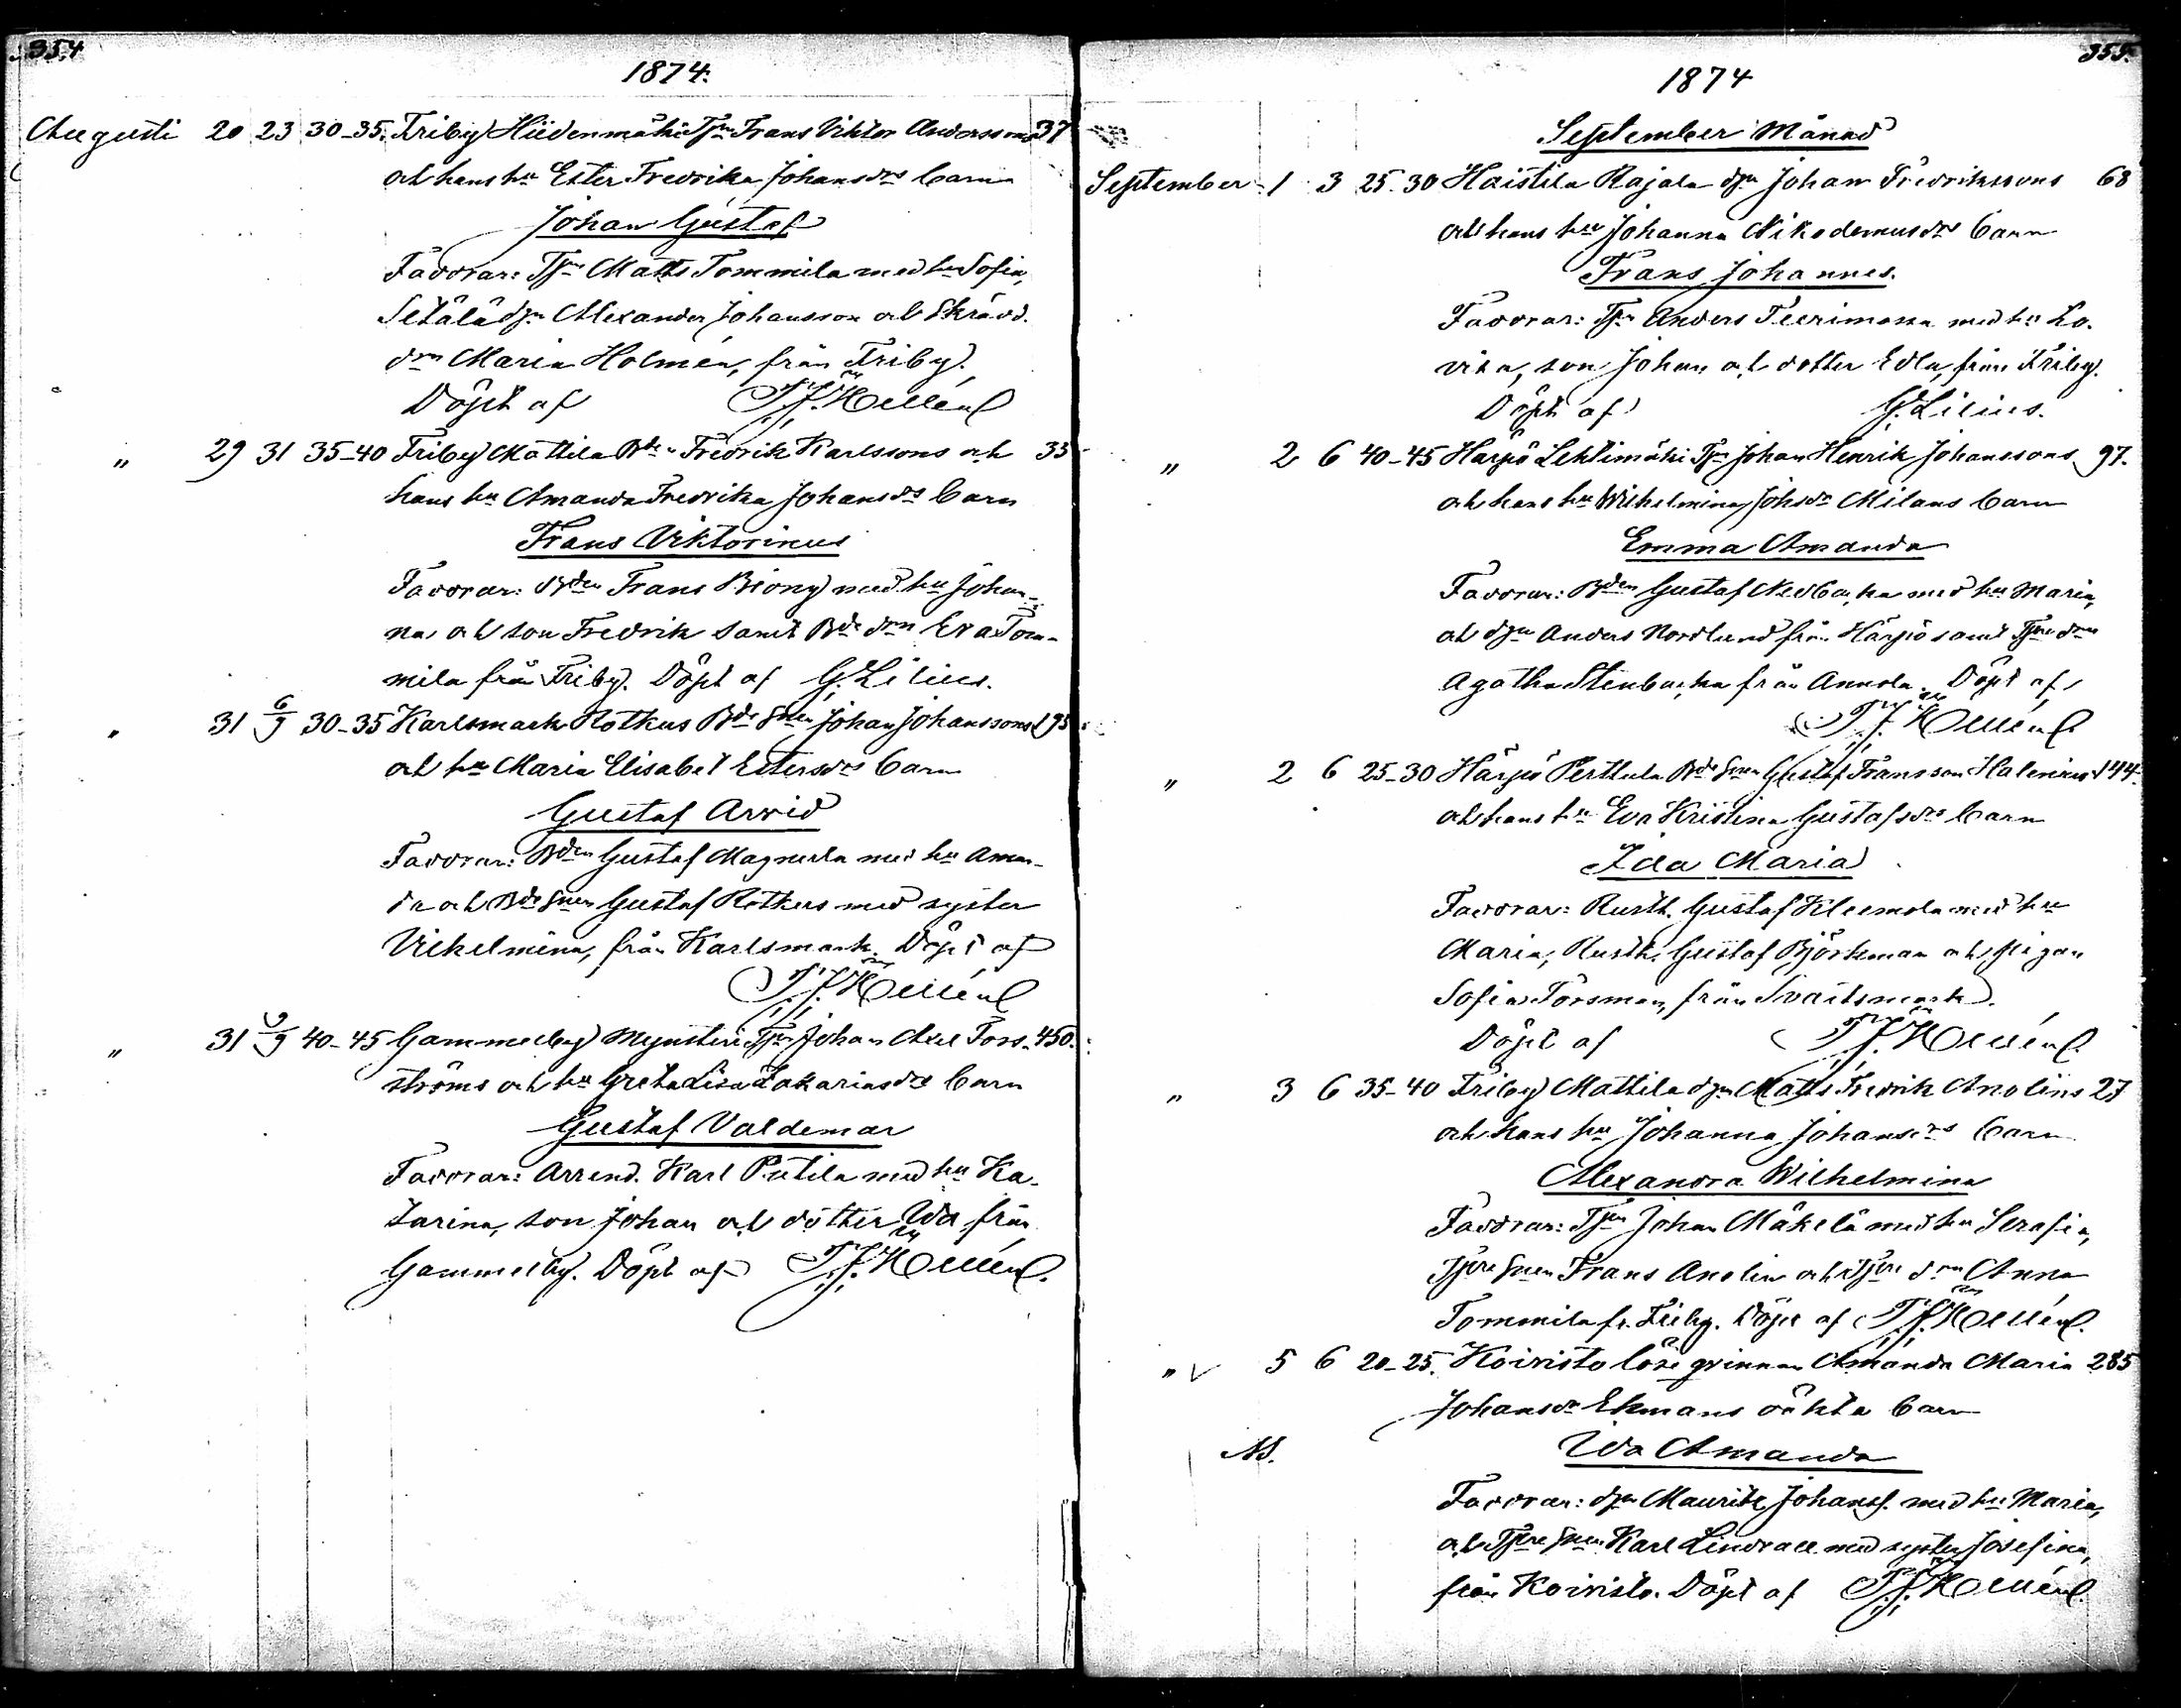 354
1874.
Augusti 20 23 30-35. Friby Hiidenmäki Tjn Frans Viktor Anderssons 37
och hans hu Ester Fredrika Johansdrs barn
Johan Gustaf
Faddrar: Tjn Matts Tommila med hu Sofia,
Setälä djn Alexander Johansson och Skrädd.
drn Maria Holmén, från Friby.
Döpt af
" 29 31 35-40 Friby Mattila Bdn Fredrik Karlssons och 33
hans hu Amanda Fredrika Johansdrs barn
Frans Viktorinus
Faddrar: Bden Frans Piony med hu Johan-
na, och son Fredrik samt Bde drn Eva Tom-
mila från Friby. Döpt af G. Lilius.
" 31 6/9 30-35 Karlsmark Rotkus Bde snen Johan Johanssons 195
och hu Maria Elisabet Estersdrs barn
Gustaf Arvid
Faddrar: Bden Gustaf Magnula med hu Aman-
da och Bde snen Gustaf Rotkus med syster
Vilhelmina, från Karlsmark. Döpt af
" 31 6/9 40-45 Gammelby Mynsteri Tjn Johan Axel Fors- 450.
ströms och hu Greta Lisa Zakariasdrs barn
Gustaf Valdemar
Faddrar: Arrend. Karl Putila med hu Ka-
tarina, son Johan och dotter Ida från
Gammelby. Döpt af
355.
1874
September Månad
September 1 3 25-30 Haistila Rajala djn Johan Fredrikssons 68
och hans hu Johanna Nikodemusdrs barn
Frans Johannes.
Faddrar: Tjn Anders Teerimossa med hu Lo-
visa, son Johan och dotter Edla, från Friby.
Döpt af G. Lilius.
" 2 6 40-45 Harjo Lehtimäki Tjn Johan Henrik Johanssons 97.
och hans hu Wilhelmina Johsdr Milans barn
Emma Amanda
Faddrar: Bden Gustaf Nedbacka med hu Maria,
och djn Anders Nordlund från Harjo samt Tjre drn
Agatha Stenbacka från Annola. Döpt af
" 2 6 25-30 Harjo Perttula Bde snen Gustaf Fransson Halenius 144.
och hans hu Eva Kristina Gustafsdrs barn
Ida Maria
Faddrar: Rusth. Gustaf Kleemola med hu
Maria, Rusth. Gustaf Björkman och pigan
Sofia Forsman, från Svartsmark.
Döpt af
" 3 6 35-40 Friby Mattila djn Matts Fredrik Anolins 27
och hans hu Johanna Johansdrs barn
Alexandra Wilhelmina
Faddrar: Tjn Johan Mäkelä med hu Serafia,
Tjre snen Frans Anolin och Tjre drn Anna
Tommila fr. Friby. Döpt af
" 5 6 20-25. Koivisto lösa qvinnan Amanda Maria 285
Johansdr Ekmans oäkta barn
Ida Amanda
Faddrar: djn Mauritz Johanss. med hu Maria,
och Tjre snen Karl Lindvall med syster Josefina,
från Koivisto. Döpt af